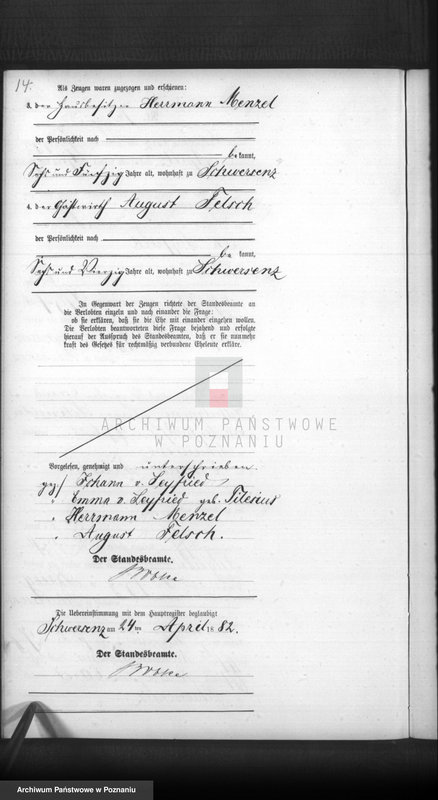 14.
Als Zeugen waren zugezogen und erschienen:
3. der Hausbesitzer Herrmann Menzel
der Persönlichkeit nach
be kannt,
Sechs und Fünfzig Jahre alt, wohnhaft zu Schwersenz
4. der Gastwirth August Felsch
der Persönlichkeit nach
be kannt,
Sechs und Vierzig Jahre alt, wohnhaft zu Schwersenz
In Gegenwart der Zeugen richtete der Standesbeamte an
die Verlobten einzeln und nach einander die Frage:
ob sie erklären, daß sie die Ehe mit einander eingehen wollen.
Die Verlobten beantworteten diese Frage bejahend und erfolgte
hierauf der Ausspruch des Standesbeamten, daß er sie nunmehr
kraft des Gesetzes für rechtmäßig verbundene Eheleute erkläre.
ARCHIWUM PAŃSTWOWE
W POZNANIU
Vorgelesen, genehmigt und unterschrieben.
gez. Johann v. Seyfried
" Emma v. Seyfried geb. Tilesius
" Herrmann Menzel
" August Felsch.
Der Standesbeamte.
Die Uebereinstimmung mit dem Hauptregister beglaubigt
Schwersenz am 24 ten April 18 82.
Der Standesbeamte.
Archiwum Państwowe w Poznaniu